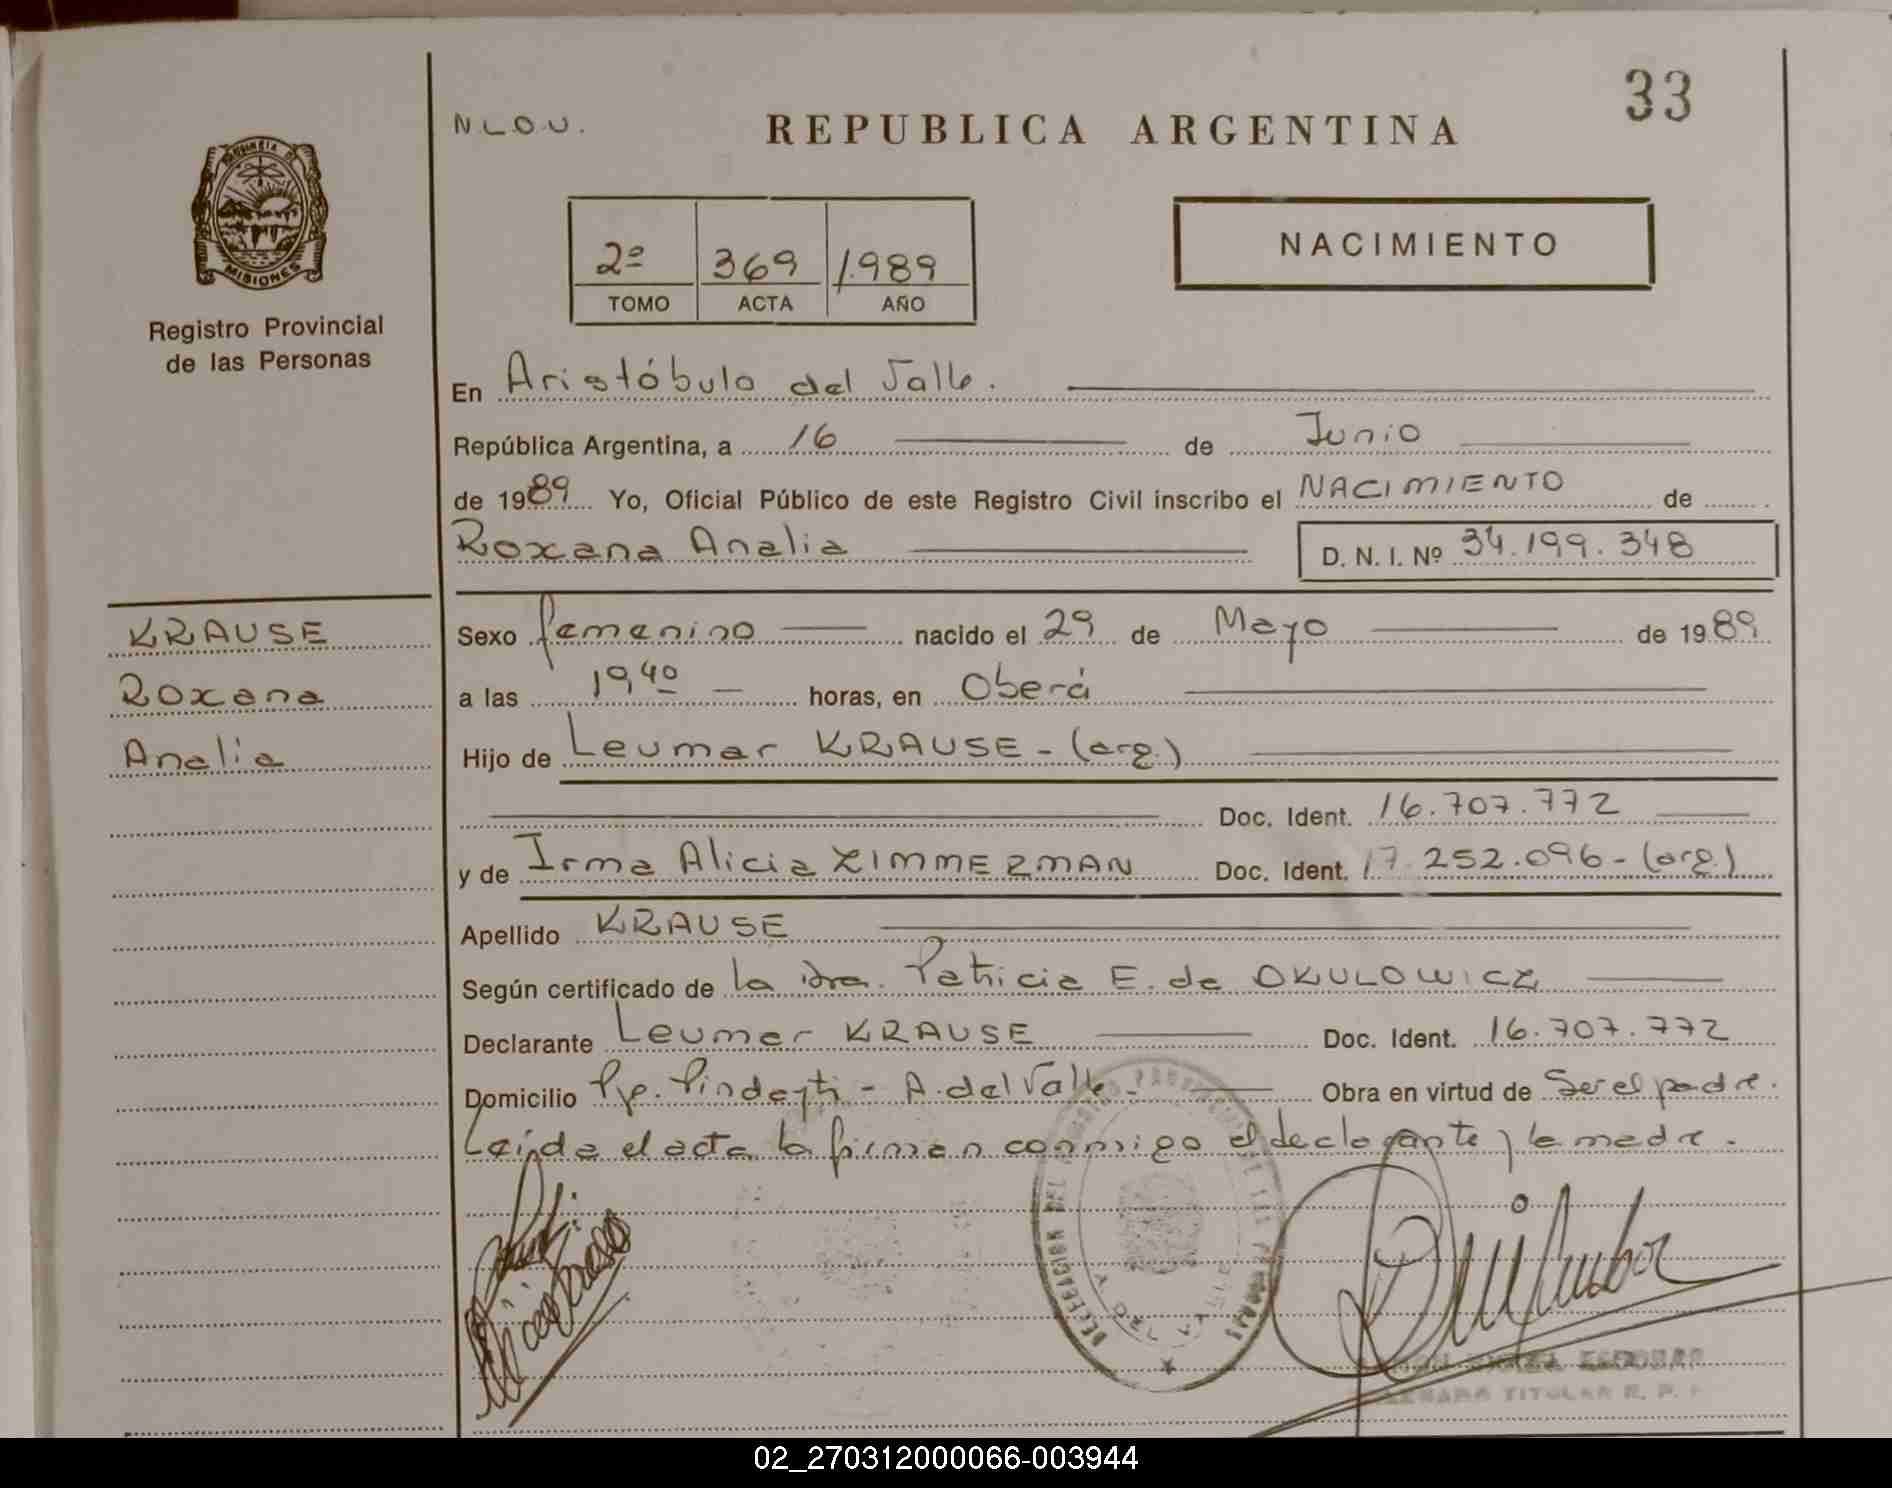 33
N.L.O.U.
REPUBLICA ARGENTINA
PROVINCIA DE
MISIONES
Registro Provincial
de las Personas
2º 369 1.989
TOMO ACTA AÑO
NACIMIENTO
En Aristóbulo del Valle.
República Argentina, a 16 de Junio
de 1989 Yo, Oficial Público de este Registro Civil inscribo el NACIMIENTO de
Roxana Analia D. N. I. Nº 34.199.348
KRAUSE
Roxana
Analia
Sexo femenino nacido el 29 de Mayo de 1989
a las 19,40 horas, en Oberá
Hijo de Leumar KRAUSE - (arg.)
Doc. Ident. 16.707.772
y de Irma Alicia ZIMMERMAN Doc. Ident. 17.252.096 - (arg.)
Apellido KRAUSE
Según certificado de la dra. Patricia E. de OKULOWICZ
Declarante Leumar KRAUSE Doc. Ident. 16.707.772
Domicilio Pje. Pindayti - A. del Valle - Obra en virtud de Ser el padre.
Leída el acta la firman conmigo el declarante y la madre.
DELEGACION DEL REGISTRO PROVINCIAL DE LAS PERSONAS
ESCOBAR
TITULAR R. P.
02_270312000066-003944